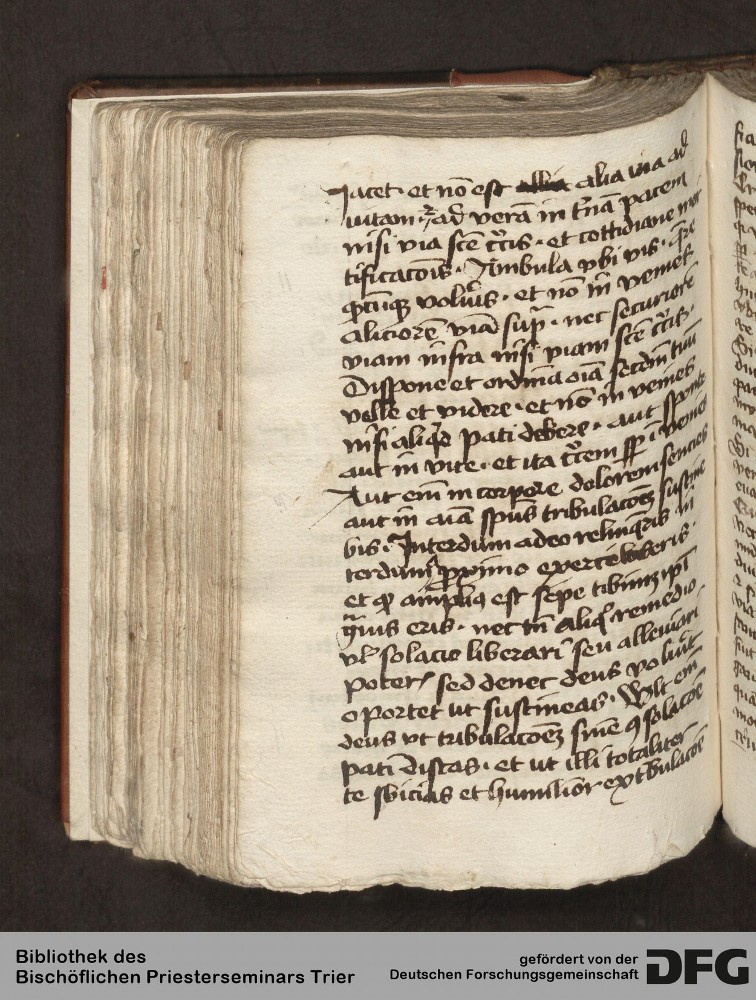 Jacet · et nō est alia via ad
vitam · ⁊ ad verā in t̄nā pacem
nisi via scē c̄cis · et cottidiane mor
tificacōis · Ambula vbi vis · q̄re
q̄cūq̄ volūis · et nō in venies
aliciorē viā sup̄ · nec securiorē
viam infra nisi viam scē c̄cis ·
Dispone et ordina oīa secdm̄ tuū
velle et videre · et nō in venies
nisi aliq̄d pati debere · aut sponte
aut in vite · et ita c̄cem sp̄ ī venies
Aut em̄ in corpore dolorem sencies
aut in aīa spūs tribulacōeꝫ sustine
bis · Interdum a deo relinq̄ris in
terdum a p̄ximo exerceberis ·
et qd̄ ampliꝯ est sepe tibimꝫ ip̄i
g̃uis eris · nec tn̄ aliq̄ remedio
vl̄ solacio liberari seu alleuiari
poteris sed donec deus voluīt
oportet ut sustineas · Wlt em̄
deus vt tribulacōeꝫ sine ꝯsolacōe
pati discas · et ut illi totaliter
te sbicias et humilior ex t̄bulacōe
Bibliothek des
Bischöflichen Priesterseminars Trier
gefördert von der
Deutschen Forschungsgemeinschaft
DFG